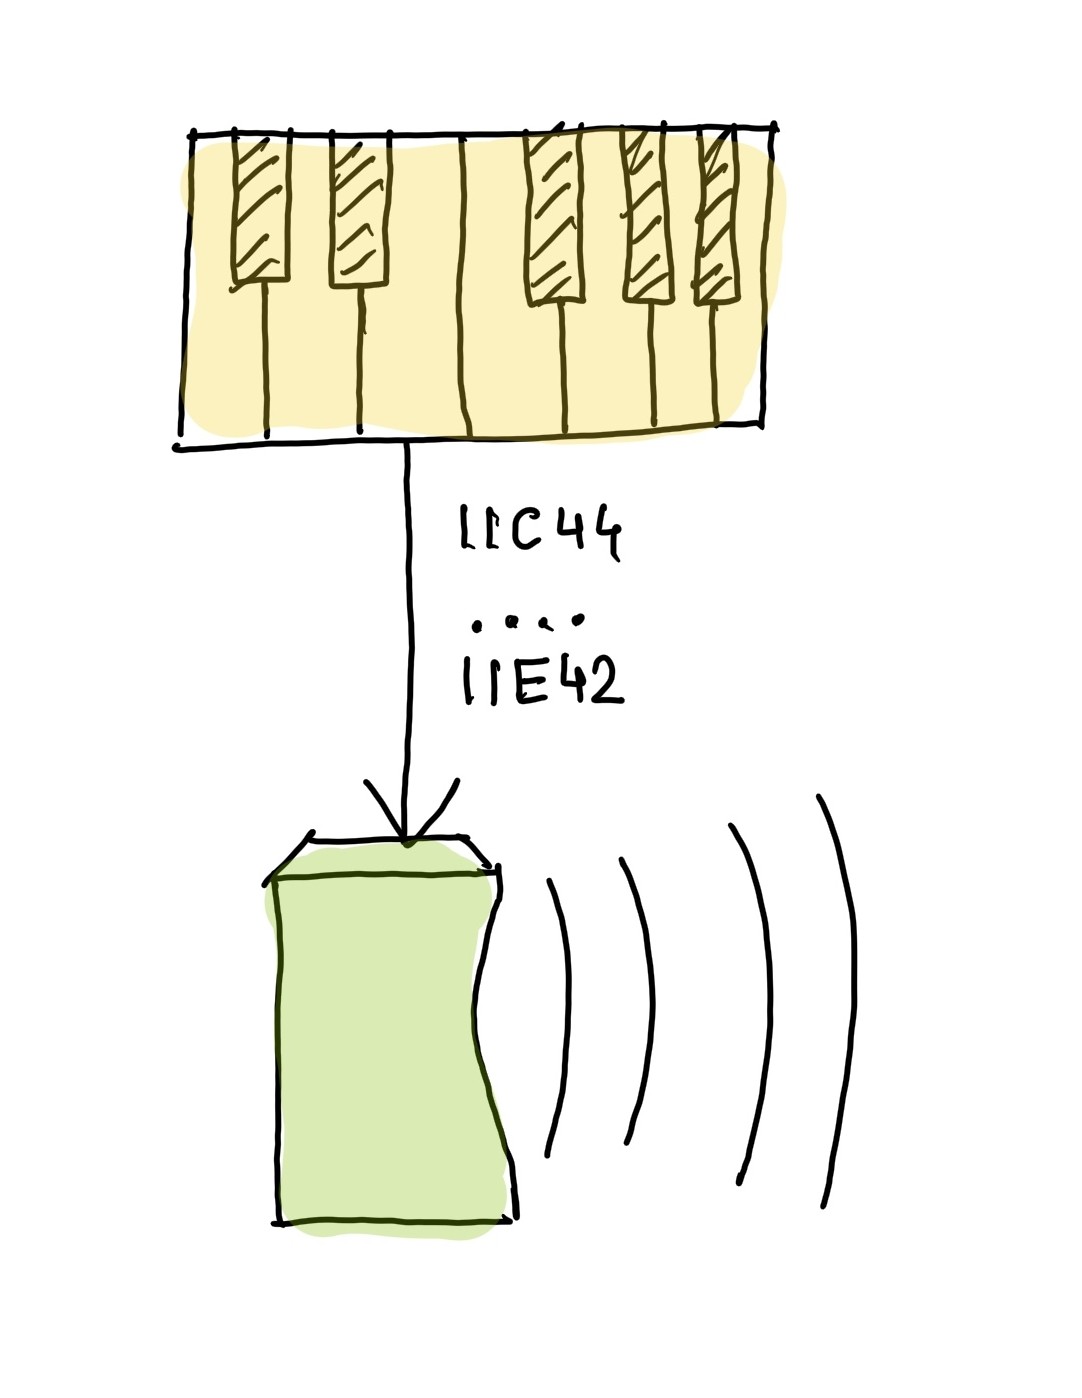 11C44
....
11E42